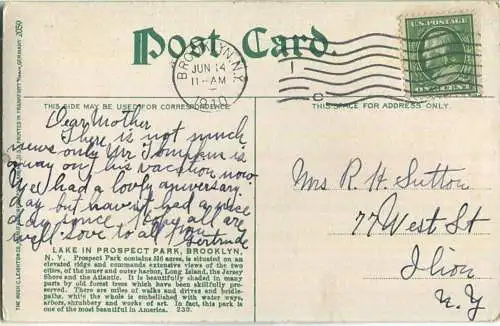 Post Card.
BROOKLYN, N.Y.
JUN 14
11-AM
1910
1
U.S. POSTAGE
ONE CENT
THIS SIDE MAY BE USED FOR CORRESPONDENCE
THIS SPACE FOR ADDRESS ONLY.
Dear Mother
There is not much
news only Mr Tompkins is
away on his vacation now
We had a lovly aniversary
day but haven't had a nice
day since. Hope all are
well. Love to all from
Gertrude
LAKE IN PROSPECT PARK, BROOKLYN,
N. Y. Prospect Park contains 516 acres, is situated on an
elevated ridge and commands extensive views of the two
cities, of the inner and outer harbor, Long Island, the Jersey
Shore and the Atlantic. It is beautifully shaded in many
parts by old forest trees which have been skilfully preserved.
There are miles of walks and drives and bridle-
paths, while the whole is embellished with water ways,
arbors, shrubbery and works of art. In fact, this park is
one of the most beautiful in America. 230.
Mrs R. H. Sutton
77 West St
Ilion
N. Y
THE HUGH C. LEIGHTON CO. PRINTED IN FRANKFORT GERMANY 2059